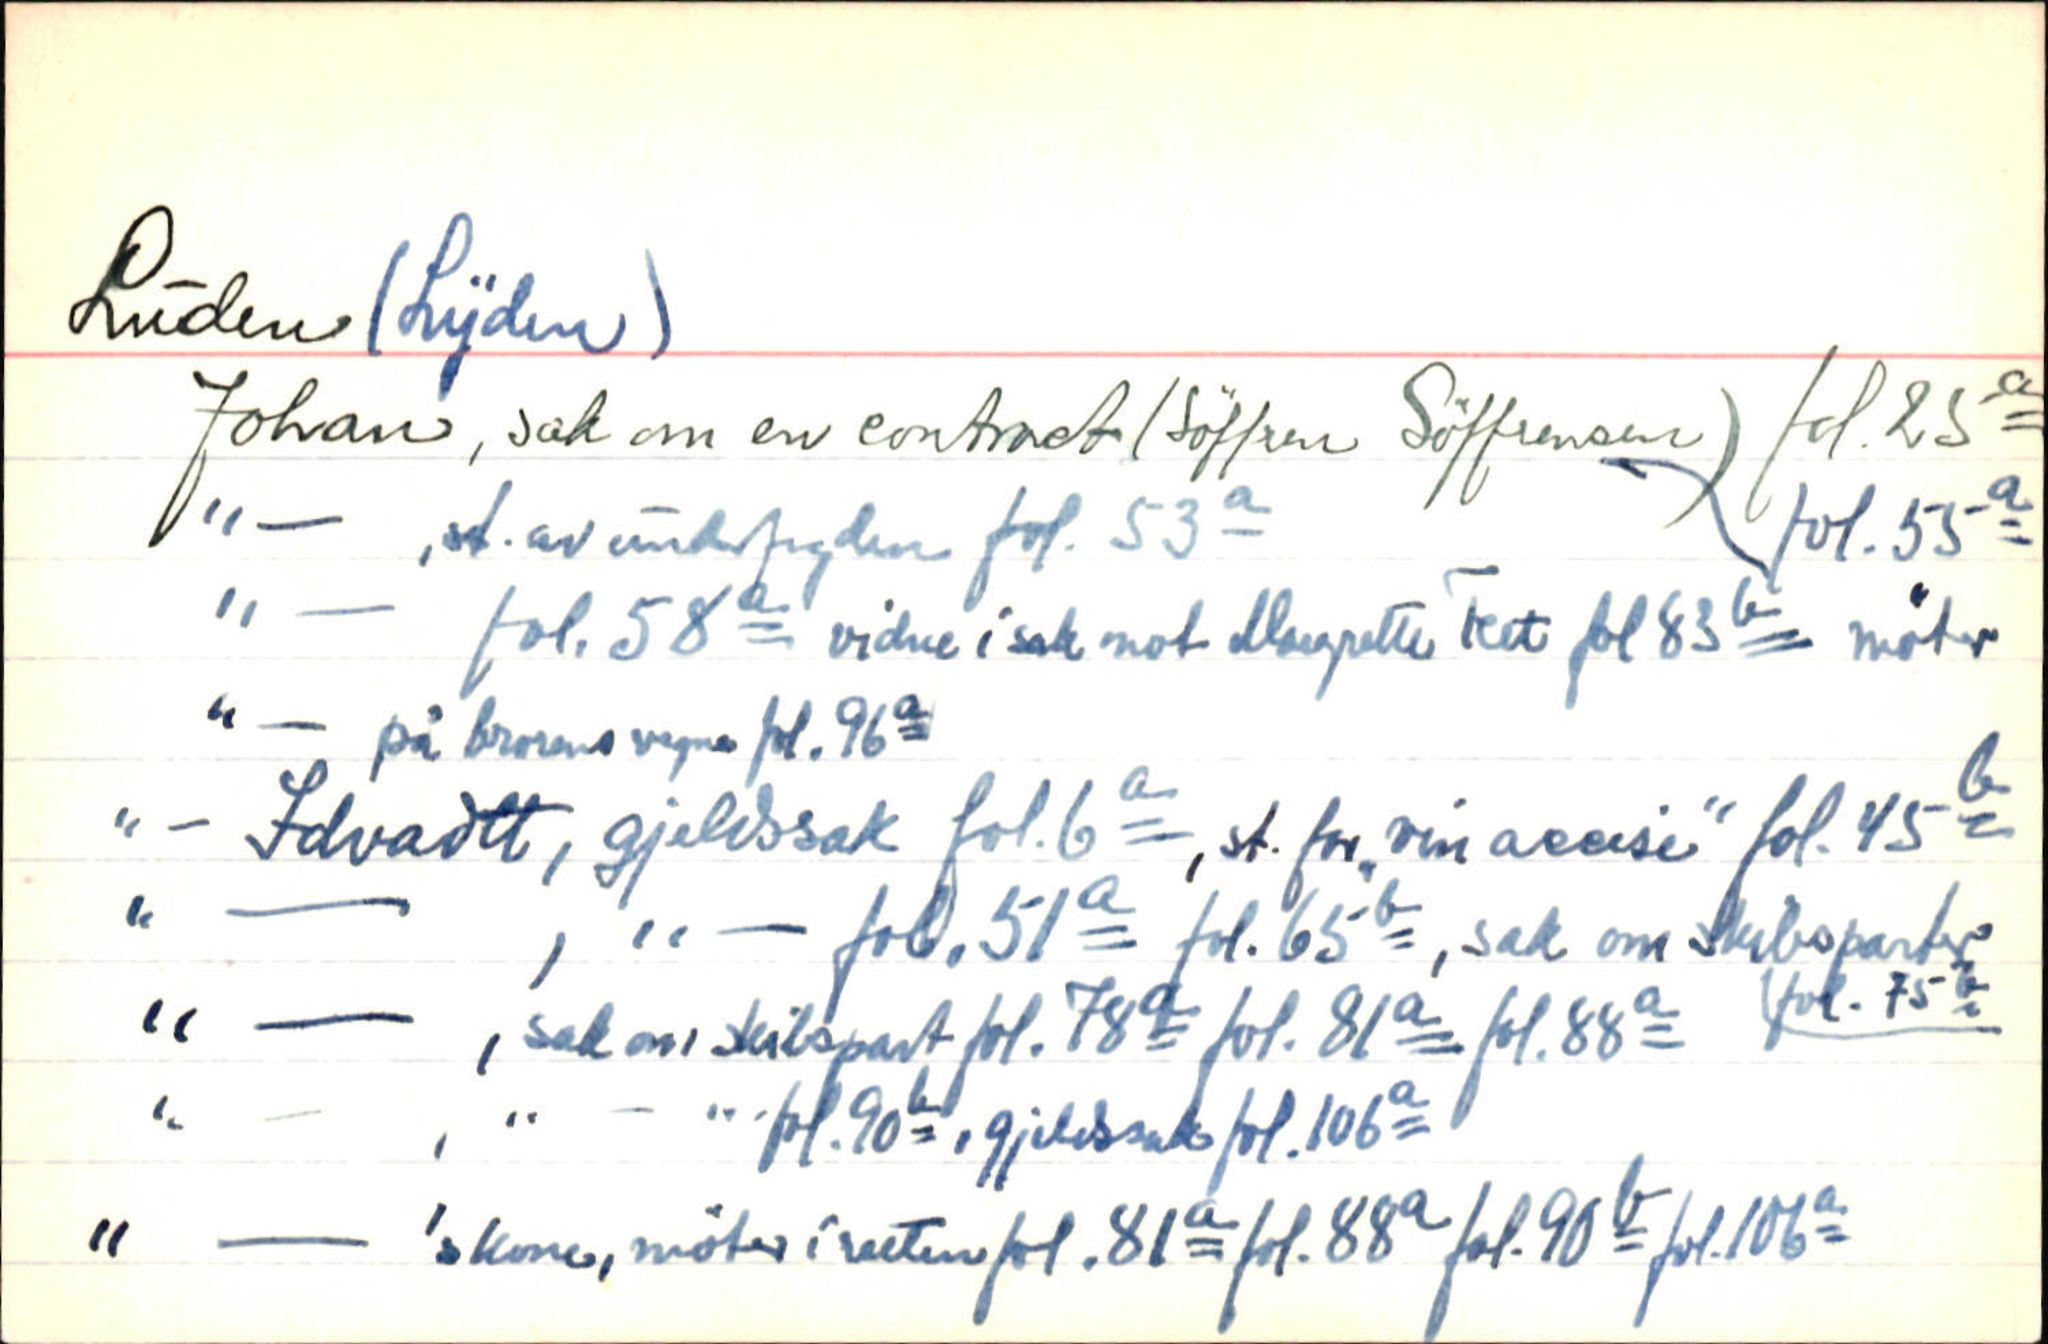 Lūden (Lÿden)
Johan, sak om en contract (Söffren Söffrensen) fol. 25a
"— , st. av fol. 53a fol. 55a
"— fol. 58a vidne i sak mot Margrette Ket fol 83b möter
"— på brorens vegne fol. 96a
"— Idvardtt, gjeldssak fol. 6a, st. for „vin accise" fol. 45b
" — , "— fol. 51a fol. 65b, sak om skibsparter
" — , sak om skibspart fol. 78a fol. 81a fol. 88a (fol. 75b
" — , " — " fol. 90b, gjeldssak fol. 106a
" — 's kone, möter i retten fol. 81a fol. 88a fol. 90b fol. 106a